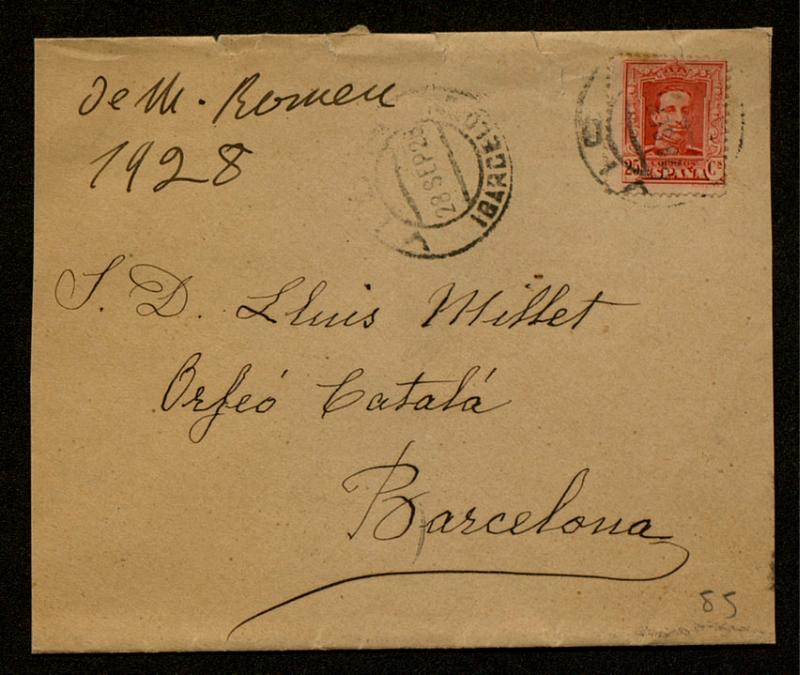 de M. Romeu
1928
28 SEP 28
25 CORREOS Cs
ESPAÑA
S. D. Lluis Millet
Orfeó Catalá
Barcelona
85